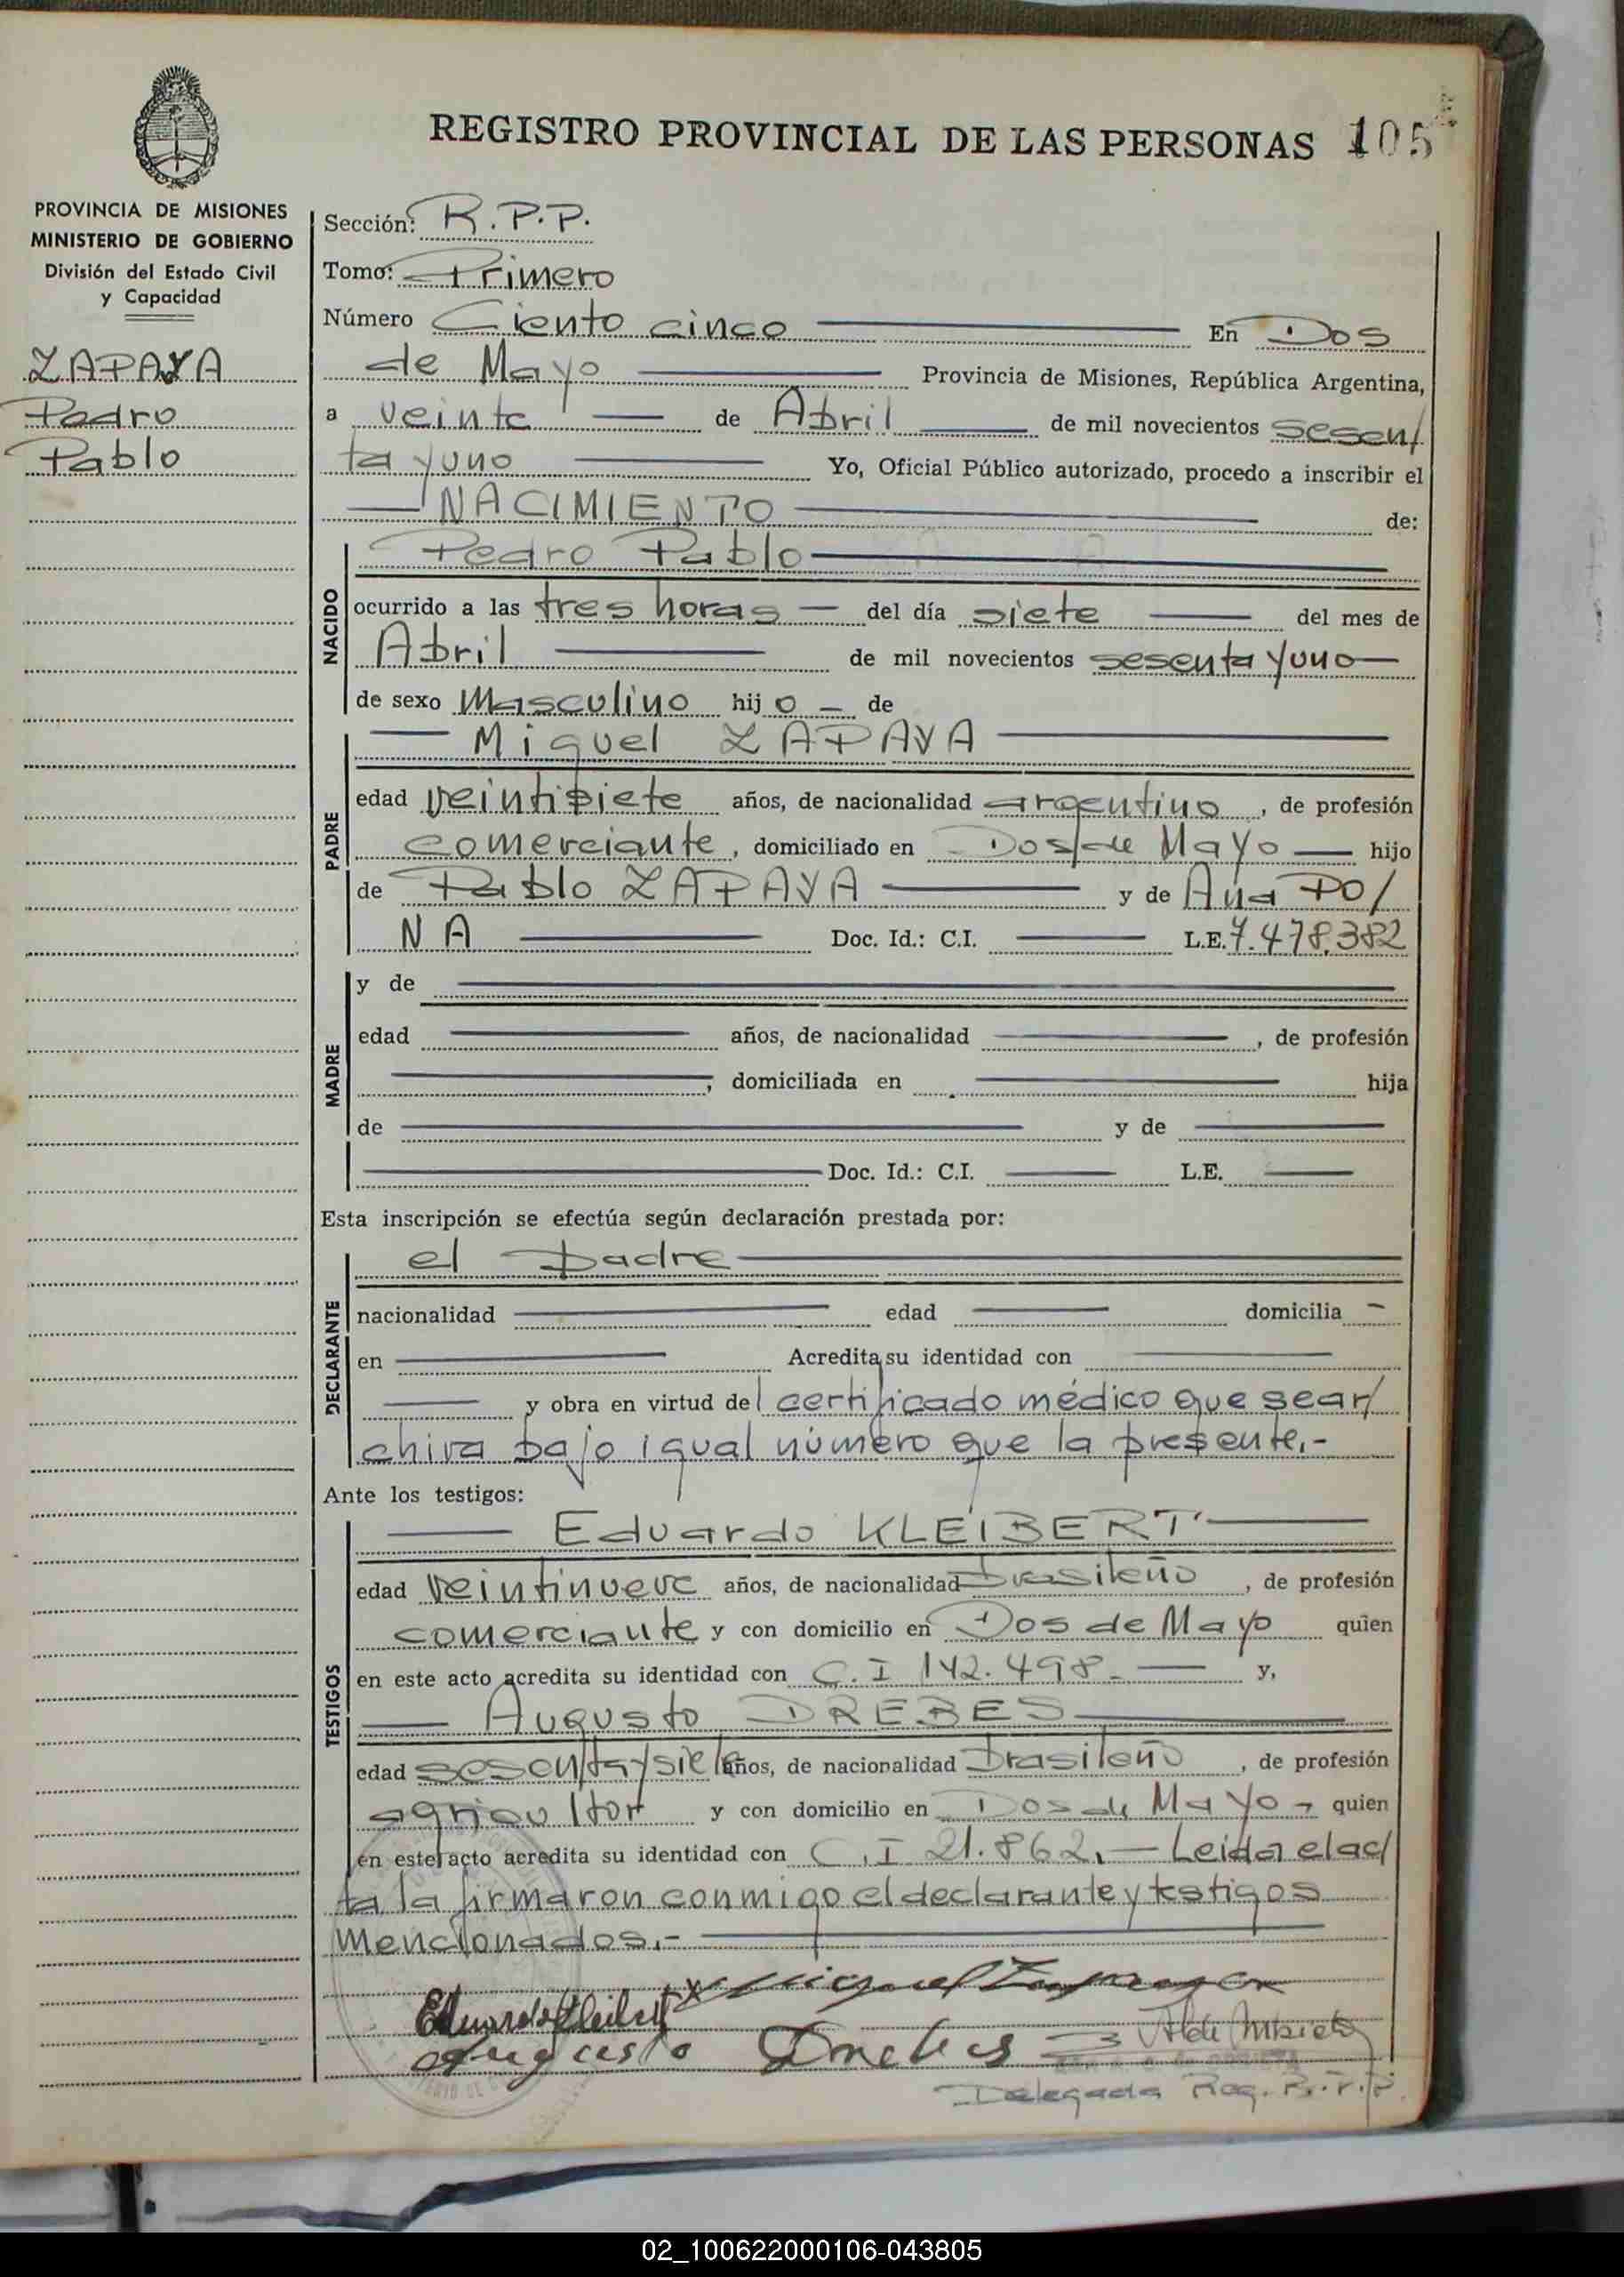 REGISTRO PROVINCIAL DE LAS PERSONAS 105
PROVINCIA DE MISIONES
MINISTERIO DE GOBIERNO
División del Estado Civil
y Capacidad
ZAPAYA
Pedro
Pablo
Sección: R.P.P.
Tomo: Primero
Número Ciento cinco En Dos
de Mayo Provincia de Misiones, República Argentina,
a veinte de Abril de mil novecientos sesen/
ta y uno Yo, Oficial Público autorizado, procedo a inscribir el
NACIMIENTO de:
NACIDO
Pedro Pablo
ocurrido a las tres horas del día siete del mes de
Abril de mil novecientos sesenta y uno
de sexo Masculino hijo de
PADRE
Miguel ZAPAYA
edad veintisiete años, de nacionalidad argentino, de profesión
comerciante, domiciliado en Dos de Mayo hijo
de Pablo ZAPAYA y de Ana PO/
NA Doc. Id.: C.I. L.E. 7.478.382
MADRE
y de
edad años, de nacionalidad , de profesión
, domiciliada en hija
de y de
Doc. Id.: C.I. L.E.
Esta inscripción se efectúa según declaración prestada por:
DECLARANTE
el padre
nacionalidad edad domicilia
en Acredita su identidad con
y obra en virtud del certificado médico que se ar/
chiva bajo igual número que la presente.-
Ante los testigos:
TESTIGOS
Eduardo KLEIBERT
edad veintinueve años, de nacionalidad brasileño, de profesión
comerciante y con domicilio en Dos de Mayo quien
en este acto acredita su identidad con C.I 142.498.- y,
Augusto DREBES
edad sesenta y siete años, de nacionalidad brasileño, de profesión
agricultor y con domicilio en Dos de Mayo quien
en este acto acredita su identidad con C.I 21.862.- Leida el ac/
ta la firmaron conmigo el declarante y testigos
mencionados.-
x Miguel Zapaya
Eduardo Kleibert
Augusto Drebes
Delegada Reg. R.P.P.
02_100622000106-043805